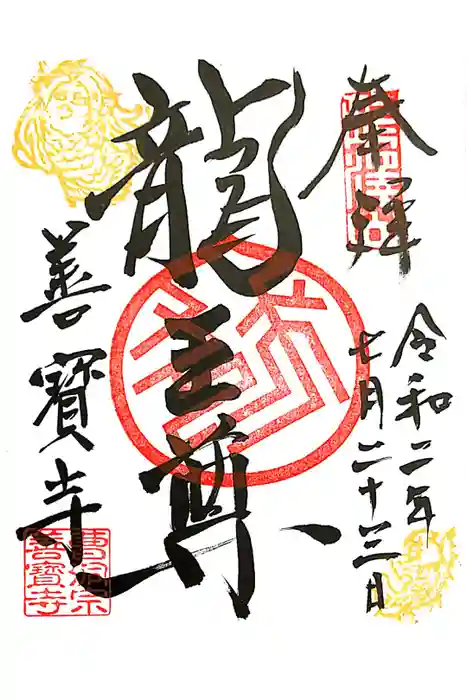 奉拝
令和二年
七月二十三日
龍王尊
善寶寺
曹洞宗
善寶寺